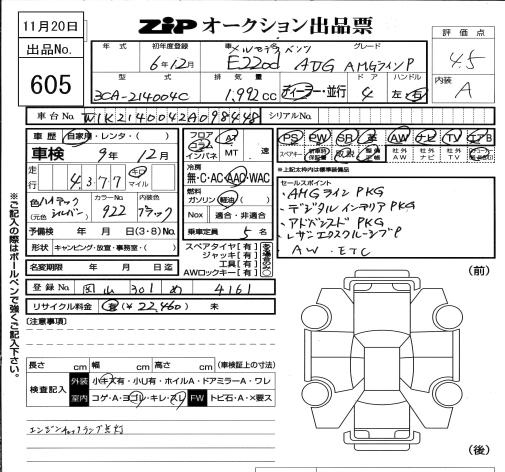 11月20日
ZIP オークション出品票
出品No.
605
評価点
4.5
内装
A
年式
初年度登録
6年12月
車名
メルセデスベンツ
E220d
グレード
AVG AMGラインP
型式
3CA-214004C
排気量
1,992CC
ディーラー・並行
ドア
4
ハンドル
左・右
車台No.
W1K2140042A098448
シリアルNo.
車歴
自家用・レンタ・( )
車検
9年 12月
走行
4,377
キロ
マイル
色
ハイテックシルバー
(元色 )
カラーNo.
922
内装色
ブラック
予備検
年 月 日(3・8)No.
形状
キャンピング・放置・事務室・( )
名変期限
年 月 日迄
フロア
コラム
インパネ
AT
MT
速
冷房
無・C・AC・AAC・WAC
燃料
ガソリン(軽油)
Nox
適合・非適合
乗車定員
5名
スペアタイヤ[有]
ジャッキ[有]
工具[有]
AWロックキー[有]
PS
PW
SR
革
AW
ナビ
TV
エアB
スペアキー
新車時保証書
取説
整備手帳
社外AW
社外ナビ
社外TV
*上記太枠内は標準装備品
セールスポイント
・AMGラインPKG
・デジタルインテリアPKG
・アドバンスドPKG
・レザーエクスクルーシブP
・AW. ETC
登録No.
岡山 301 め 4161
リサイクル料金
有(¥22,460) 未
【注意事項】
長さ cm 幅 cm 高さ cm (車検証上の寸法)
検査記入
外装
小キズ有・小U有・ホイルA・ドアミラーA・ワレ
室内
コゲA・ヨゴレ・キレ・スレ
FW
トビ石・A・×要ス
エンジンチェックランプ点灯
(前)
(後)
※ご記入の際はボールペンで強くご記入下さい。